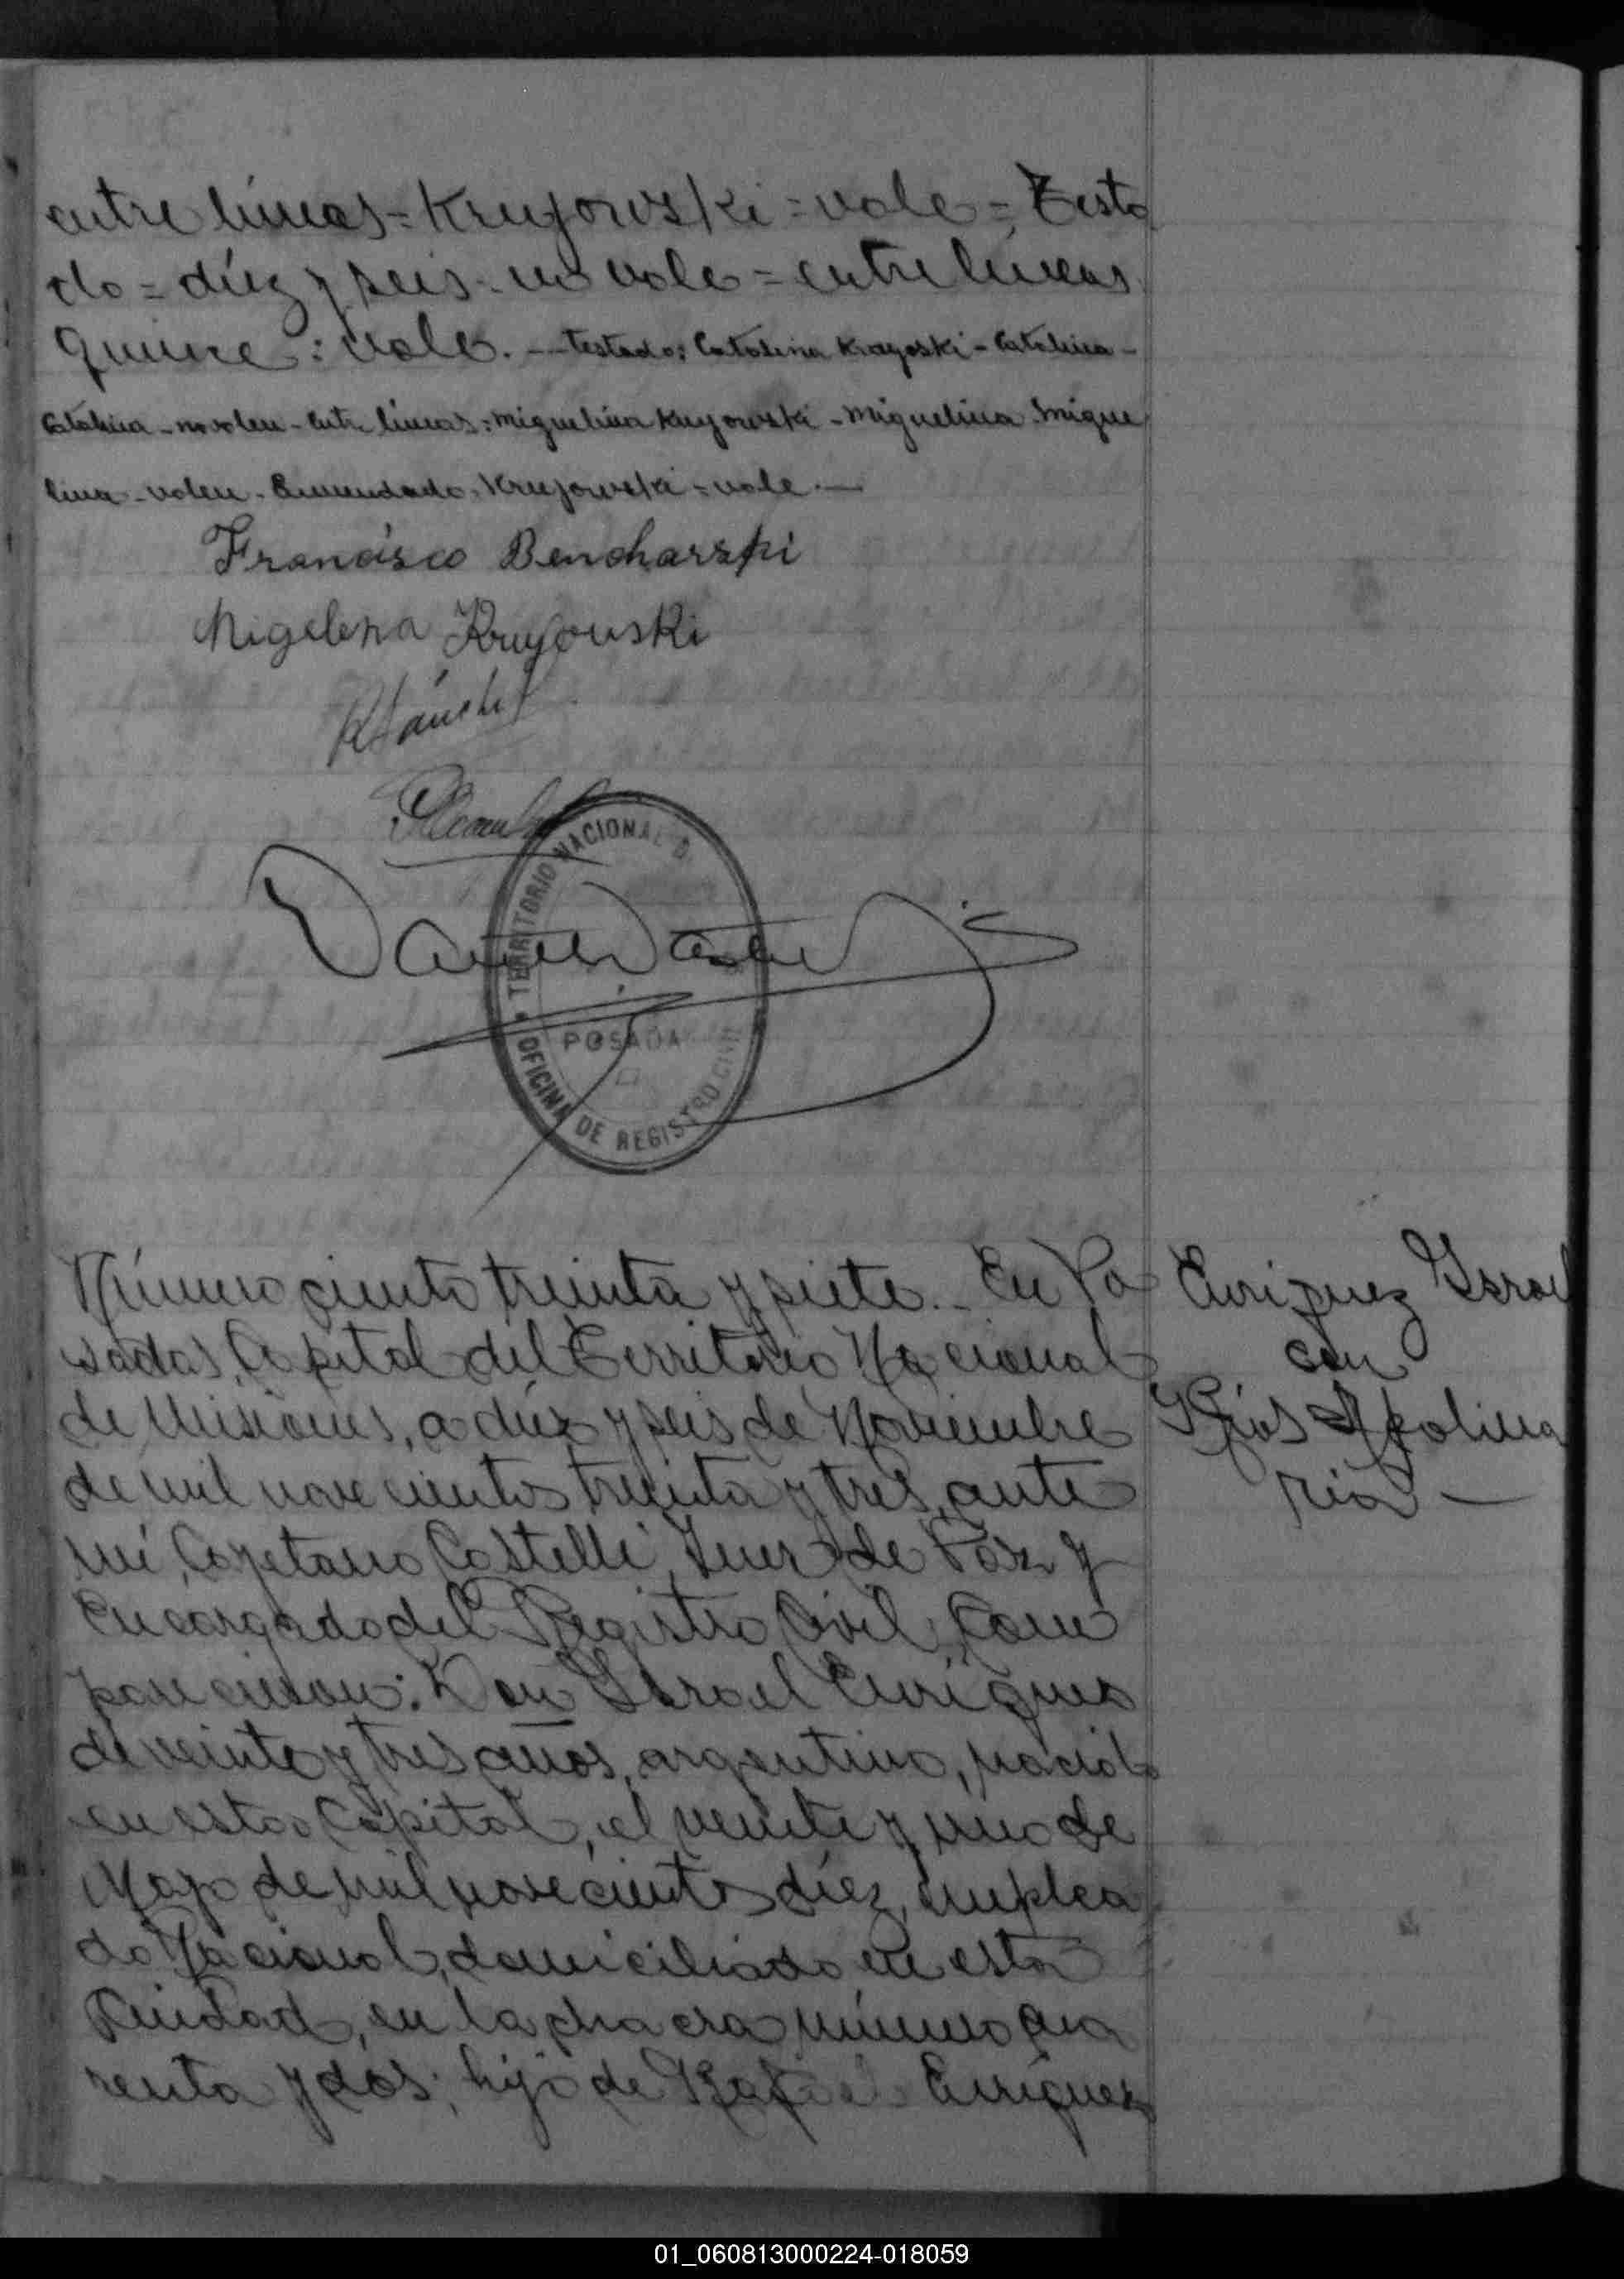 entre líneas = Kruyowski = vale = Testa
do = diéz y seis = no vale = entre líneas
quince : vale. — testado: Catalina Krayoski - Catalina -
Catalina - no valen - entre líneas: Miguelina Kruyowski - Miguelina - Migue
lina - valen - Enmendado: Kruyowski = vale. —
Francisco Bencharski
Migelena Kruyouski
TERRITORIO NACIONAL D
POSADA
OFICINA DE REGISTRO CIVIL
Número ciento treinta y siete. - En Po
sadas, Capital del Territorio Nacional
de Misiones, a diéz y seis de Noviembre
de mil novecientos treinta y tres, ante
mí, Cayetano Castelli, Juez de Paz y
Encargado del Registro Civil, Com
parecieron: Don Israel Enriquez
de veinte y tres años, argentino, nacido
en esta Capital, el veinte y uno de
Mayo de mil novecientos diéz, emplea
do Nacional, domiciliado en esta
Ciudad, en la chacra número cua
renta y dos; hijo de Rafael Enriquez
Enriquez Israel
con
Ríos Apolina
ria —